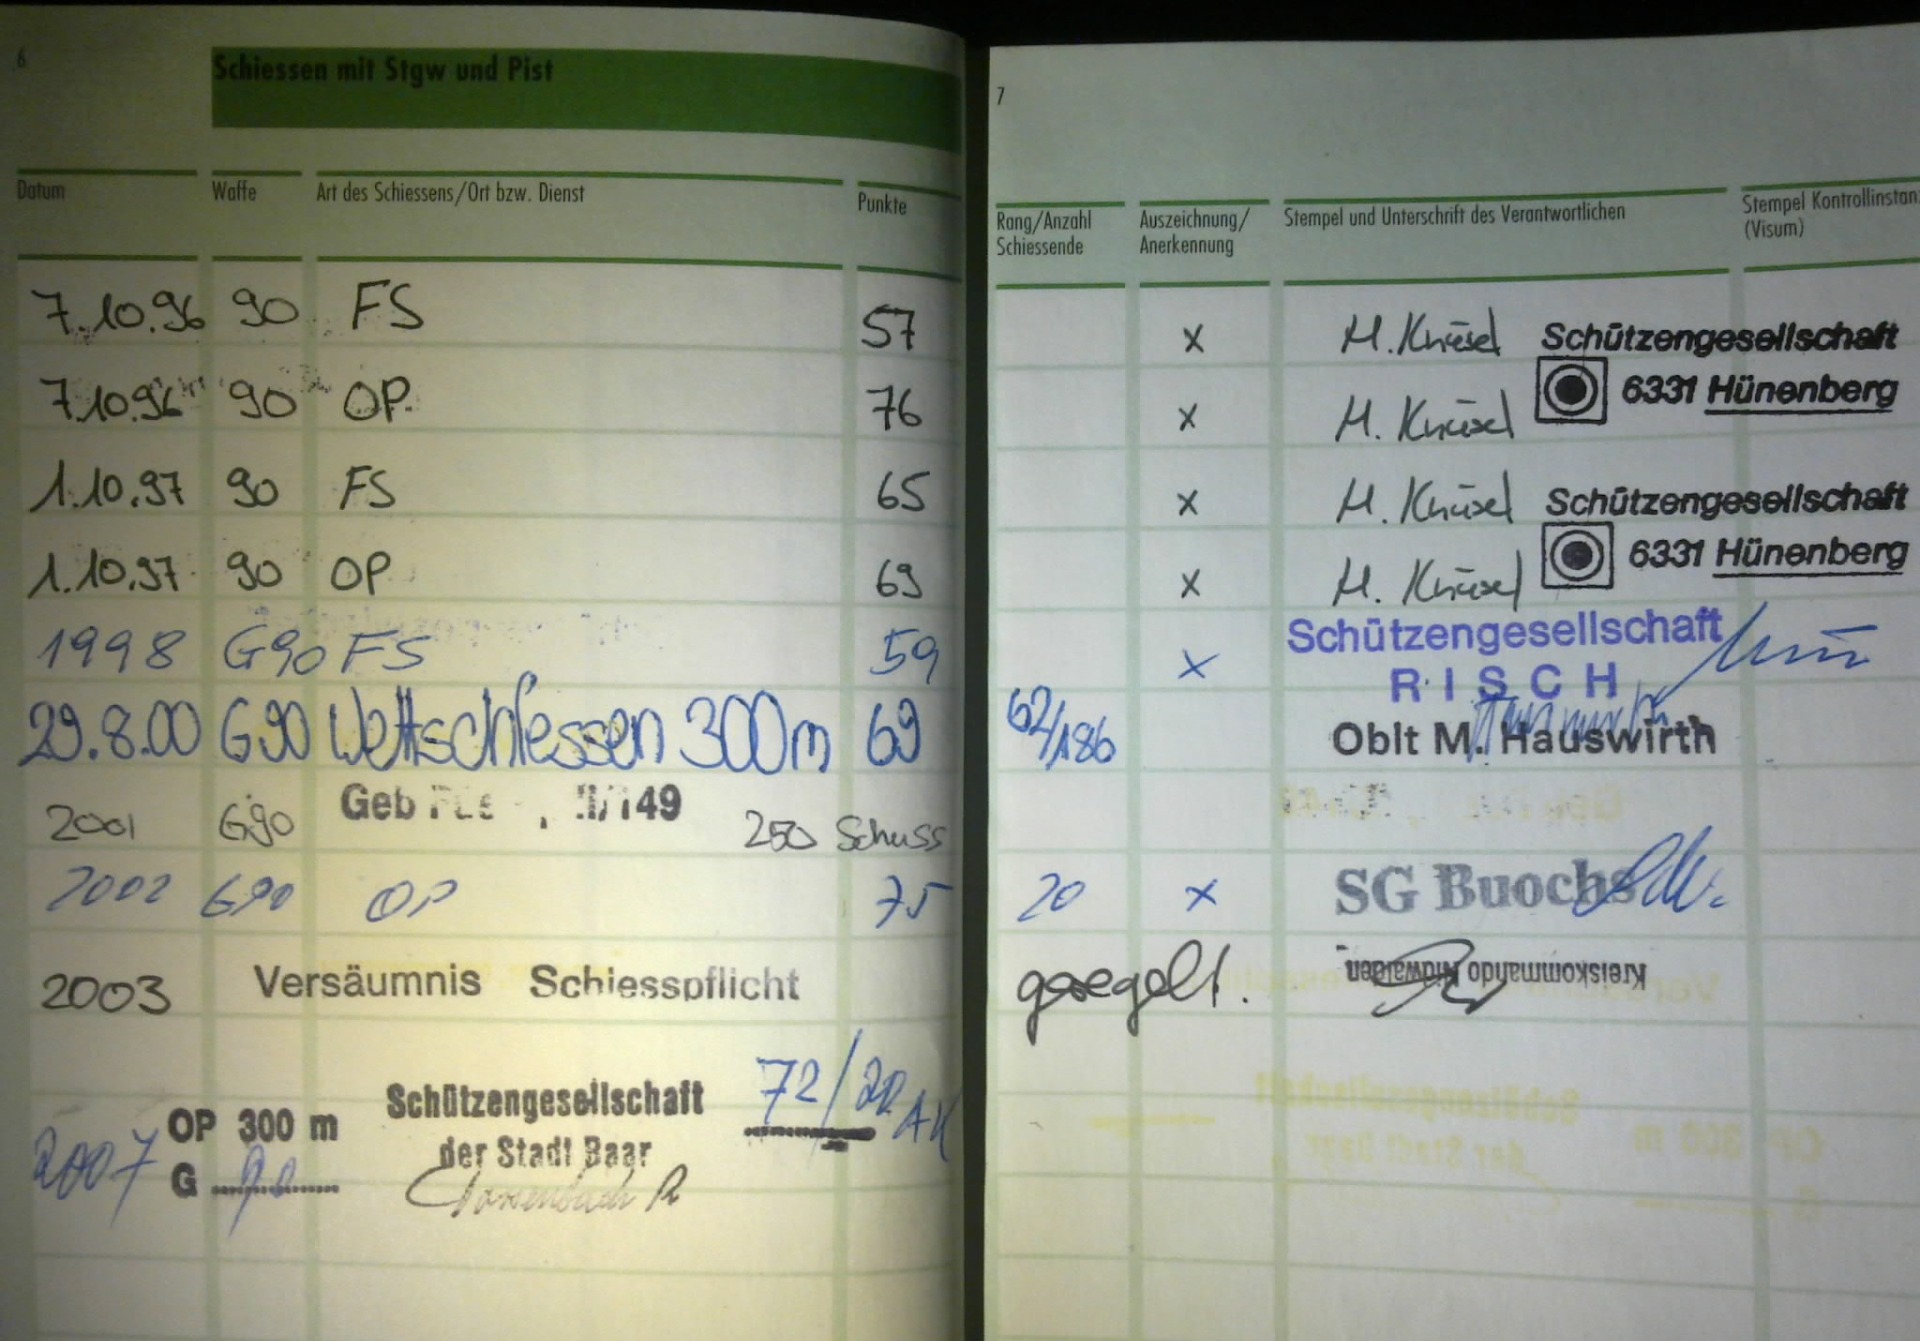 6
Schiessen mit Stgw und Pist
Datum Waffe Art des Schiessens/Ort bzw. Dienst Punkte
7.10.96 90 FS 57
7.10.96 90 OP 76
1.10.97 90 FS 65
1.10.97 90 OP 69
1998 G90 FS 59
29.8.00 G90 Wettschiessen 300m 69
2001 G90 Geb /149 250 Schuss
2002 G90 OP 75
2003 Versäumnis Schiesspflicht
2007 OP 300 m
G 90
Schützengesellschaft
der Stadt Baar
72/20 AK
7
Rang/Anzahl
Schiessende
Auszeichnung/
Anerkennung
Stempel und Unterschrift des Verantwortlichen
Stempel Kontrollinstan
(Visum)
x M. Knüsel Schützengesellschaft
x M. Knüsel 6331 Hünenberg
x M. Knüsel Schützengesellschaft
x M. Knüsel 6331 Hünenberg
x Schützengesellschaft
RISCH
62/186 Oblt M. Hauswirth
20 x SG Buochs
geregelt. Kreiskommando Nidwalden